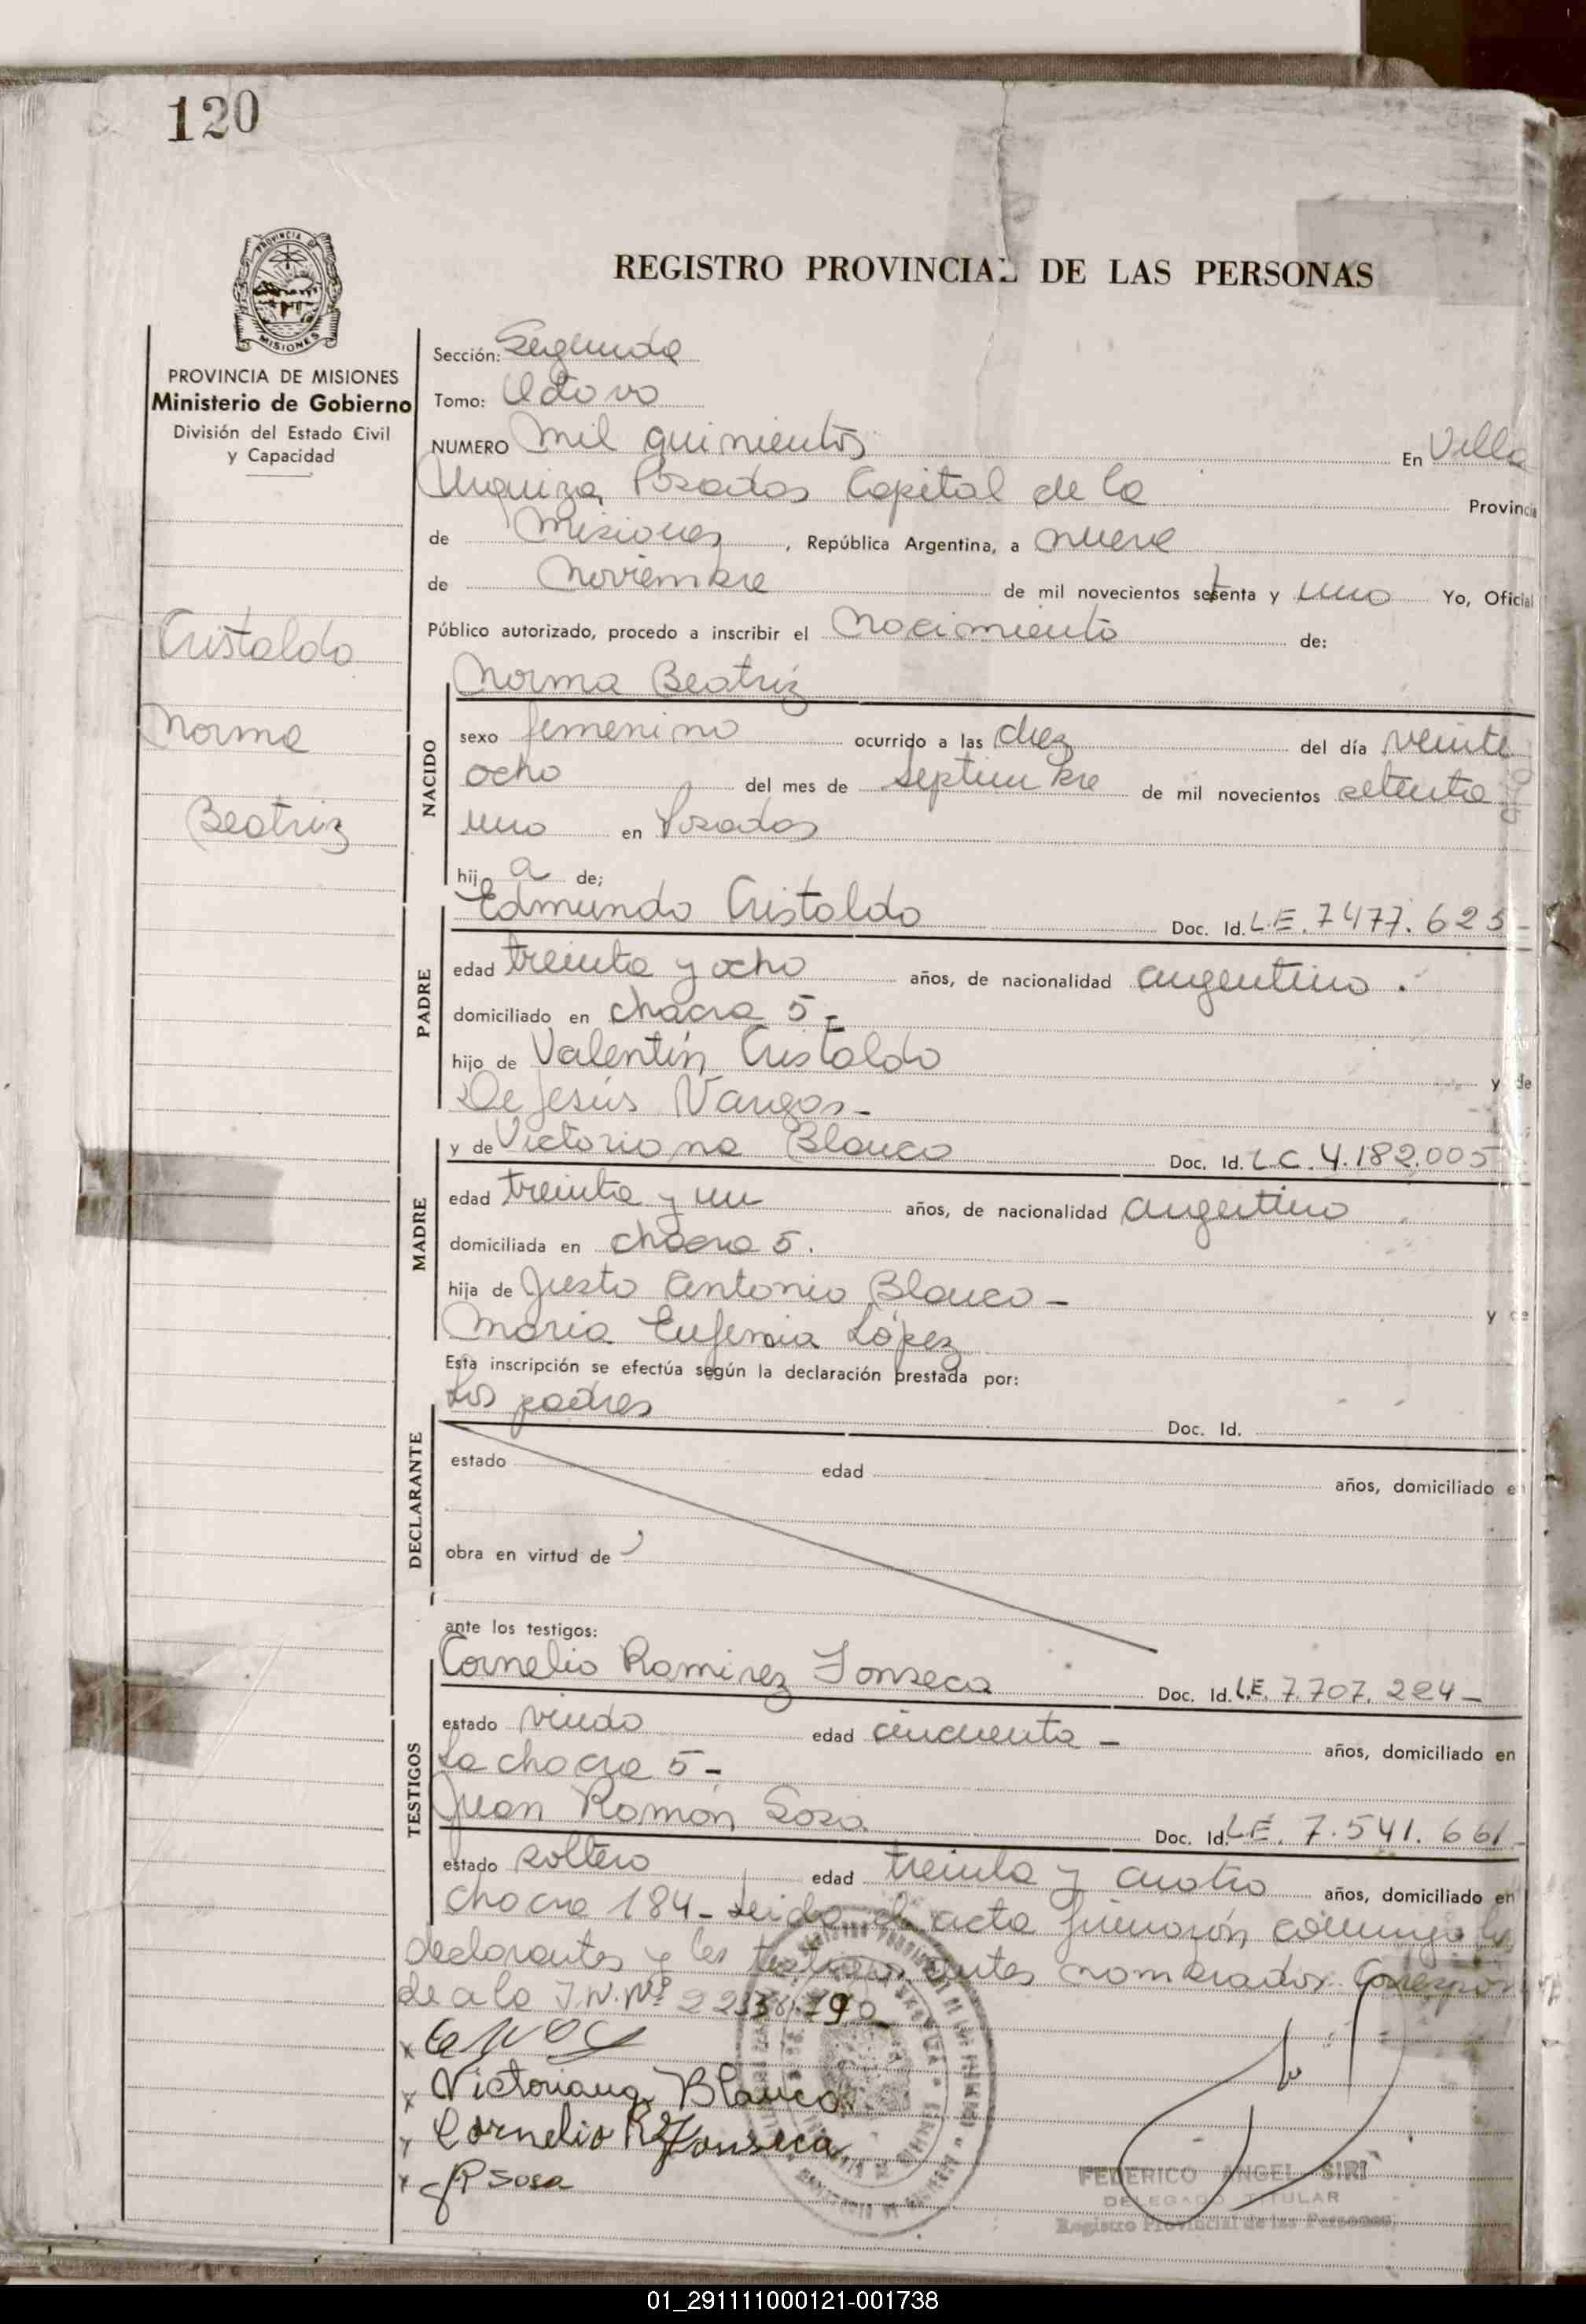 120
PROVINCIA DE MISIONES
MISIONES
PROVINCIA DE MISIONES
Ministerio de Gobierno
División del Estado Civil
y Capacidad
Cristaldo
Norma
Beatriz
REGISTRO PROVINCIAL DE LAS PERSONAS
Sección: Segunda
Tomo: Octavo
NUMERO Mil quinientos En Villa
Urquiza, Posadas Capital de la Provincia
de Misiones, República Argentina, a nueve
de Noviembre de mil novecientos setenta y uno Yo, Oficial
Público autorizado, procedo a inscribir el Nacimiento de:
Norma Beatriz
NACIDO
sexo femenino ocurrido a las diez del día veinte y
ocho del mes de septiembre de mil novecientos setenta y
uno en Posadas
hij a de;
PADRE
Edmundo Cristaldo Doc. Id. L.E. 7477.625-
edad treinta y ocho años, de nacionalidad argentino.
domiciliado en chacra 5-
hijo de Valentín Cristaldo y de
De Jesús Vargas-
MADRE
y de Victoriana Blanco Doc. Id. L.C. 4.182.005
edad treinta y un años, de nacionalidad argentina
domiciliada en chacra 5.
hija de Justo Antonio Blanco - y de
María Eufemia López
Esta inscripción se efectúa según la declaración prestada por:
DECLARANTE
Los padres Doc. Id.
estado edad años, domiciliado en
obra en virtud de
ante los testigos:
TESTIGOS
Cornelio Ramirez Fonseca Doc. Id. L.E. 7.707.224-
estado viudo edad cincuenta - años, domiciliado en
La chacra 5-
Juan Ramón Sosa Doc. Id. L.E. 7.541.661-
estado soltero edad treinta y cuatro años, domiciliado en
chacra 184- Leida el acta firmarón conmigo los
declarantes y los testigos antes nombrados. Correspon
de a la I.N. Nº
x
x Victoriana Blanco
x Cornelio R Fonseca
x JR Sosa
FEDERICO ANGEL SIRI
DELEGADO TITULAR
Registro Provincial de las Personas
01_291111000121-001738